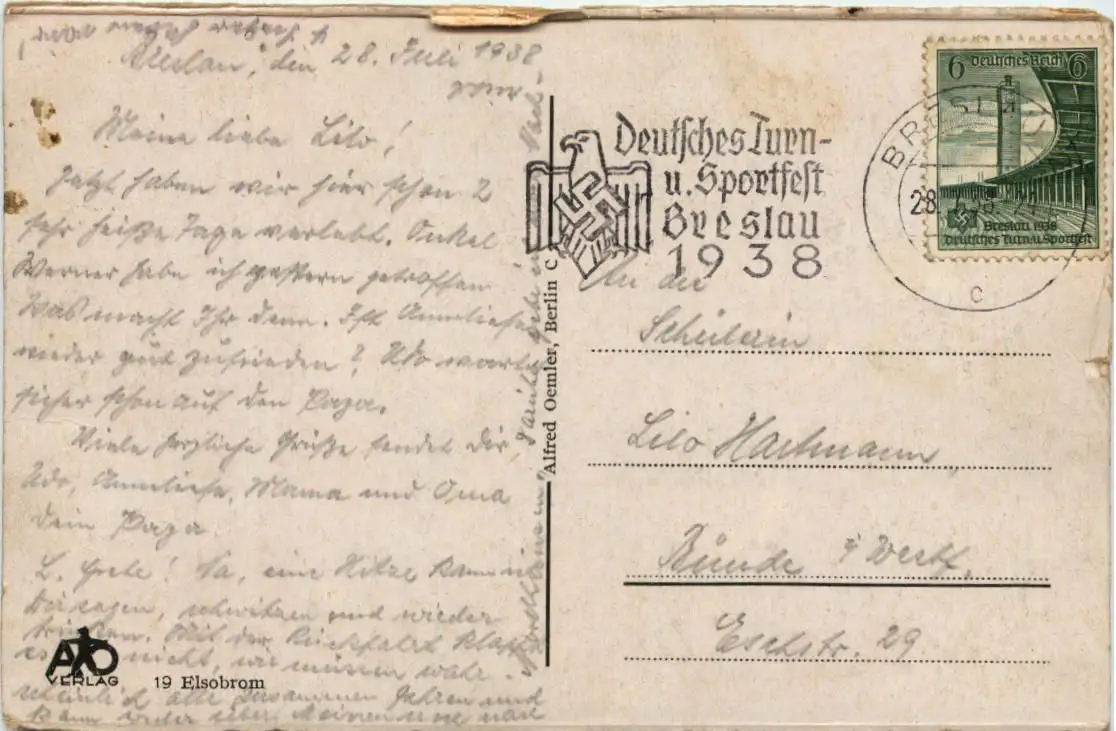 Breslau, den 28. Juli 1938
Meine liebe Lilo!
Jetzt haben wir hier schon 2
sehr heiße Tage verlebt. Onkel
Werner habe ich gestern getroffen
Was macht Ihr denn. Ist Anneliese
wieder gut zufrieden? Udo wartet
sicher schon auf den Papa.
Viele herzliche Grüße sendet Dir,
Udo, Anneliese, Mama und Oma
dein Papa.
L. Grete! Na, eine Hitze kann ich
Dir sagen, schwitzen und wieder
trinken. Mit der Rückfahrt klappt
es nicht, wir müssen wahr-
scheinlich alle zusammen fahren und
kann wieder über
AO
VERLAG
19 Elsobrom
Alfred Oemler, Berlin C
Deutsches Turn-
u. Sportfest
Breslau
1938
BRESLAU
28
C
6 Deutsches Reich 6
Breslau 1938
Deutsches Turn-u.Sportfest
An die
Schülerin
Lilo Hartmann,
Bünde i/Westf.
Eschstr. 29